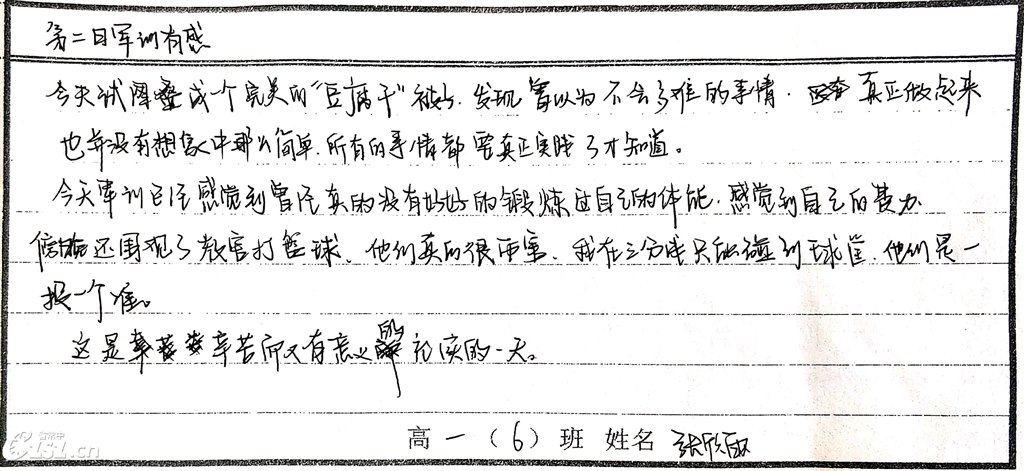 第二日军训有感
今天试图叠成一个完美的“豆腐干”被子.发现曾以为不会多难的事情.真正做起来
也并没有想象中那么简单.所有的事情都要真正实践了才知道。
今天军训已经感觉到曾经真的没有好好的锻炼过自己的体能.感觉到自己的费力.
傍晚还围观了教官打篮球、他们真的很厉害、我在三分线只能碰到球筐、他们是一
投一个准。
这是辛苦而又有意义的充实的一天。
高一(6)班 姓名 张欣